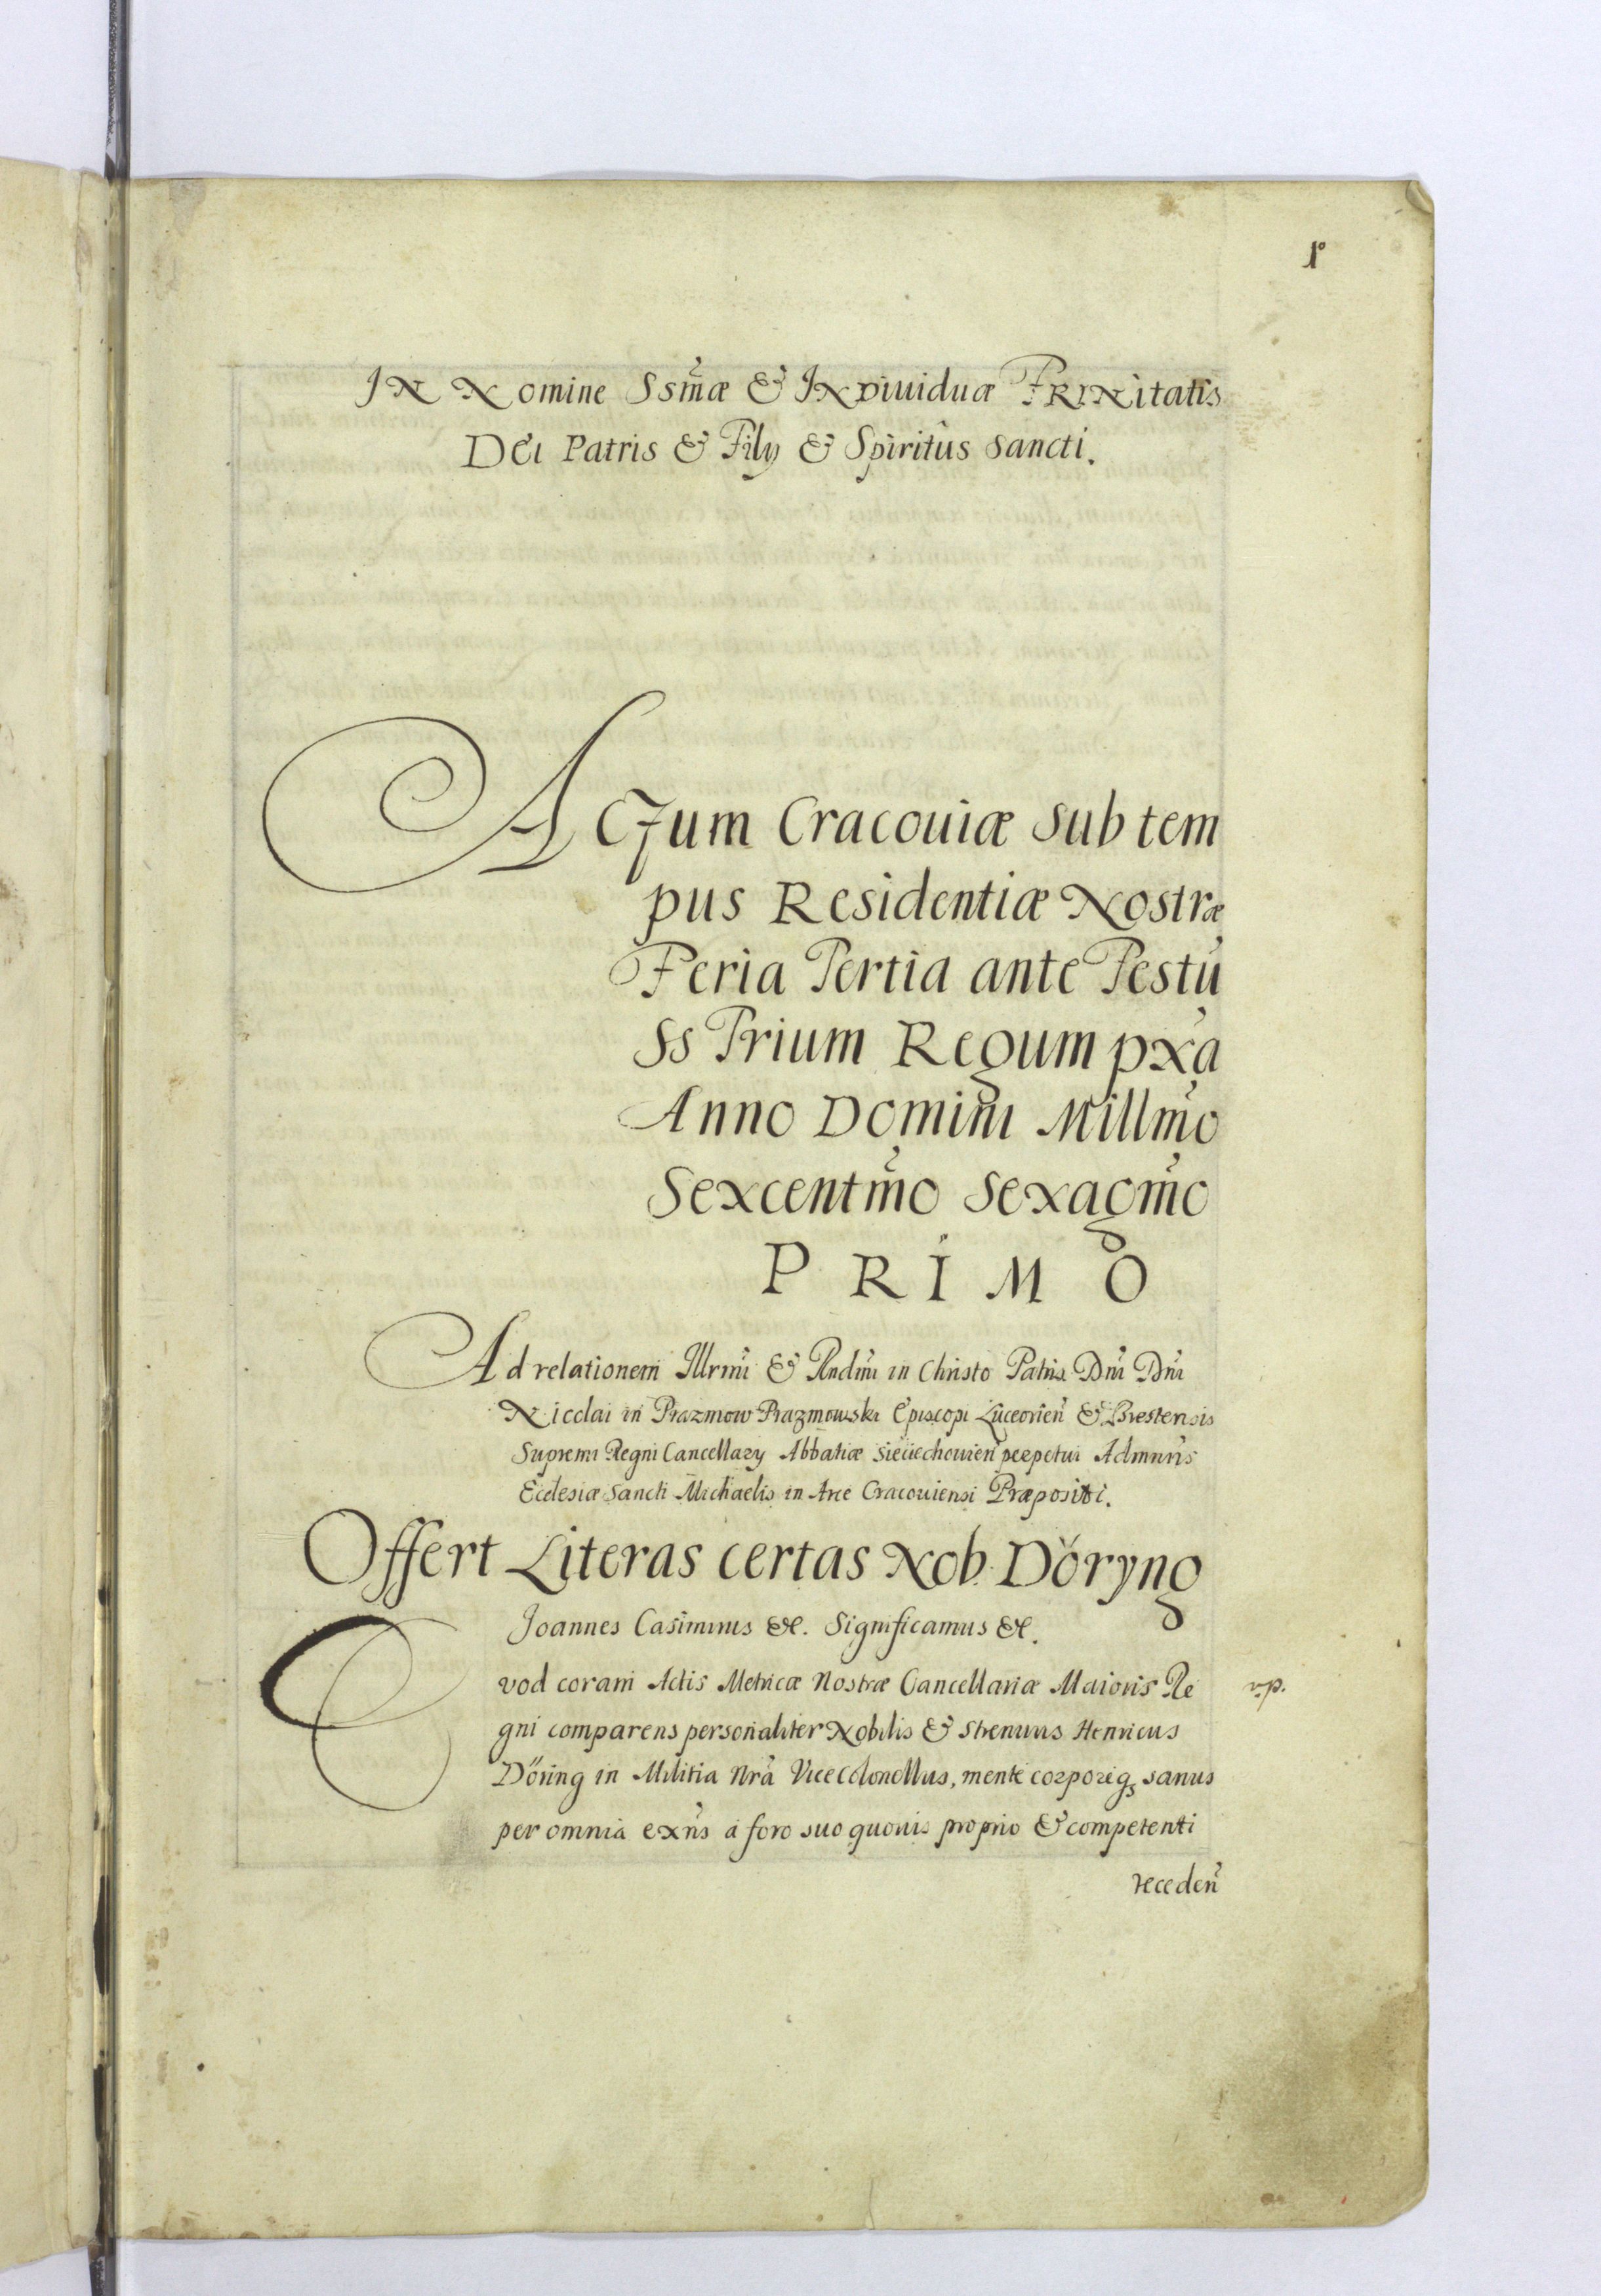 1º
IN Nomine Ssm̃æ & INDiuiduæ TRINitatis
Dei Patris & Filÿ & Spiritûs Sancti.
ACTum Cracouiæ sub tem
pus Residentiæ Nostræ
Feria Tertia ante Festũ
SS Trium Regum pxa̓
Anno Domini Millm̃o
Sexcentm̃o sexagm̃o
PRIMO
Ad relationem Illrm̃i & Rndm̃i in Christo Patris Dn̄i Dn̄i
Nicolai in Prazmow Prazmowski Episcopi Luceorien̄ & Brestensis
Supremi Regni Cancellarÿ Abbatiæ Sieciechouien̄ perpetui Admnr̄is
Ecclesiæ Sancti Michaelis in Arce Cracouiensi Præpositi.
Offert Literas certas Nob. Döryng
Joannes Casimirus &c. Significamus &c.
Qvod coram Actis Metricæ Nostræ Cancellariæ Maioris Re
v.p.
gni comparens personaliter Nobilis & Strenuus Henricus
Döring in Militia Nrã Vice Colonellus, mente corporeq; sanus
per omnia exn̄s à foro suo quouis proprio & competenti
receden̄